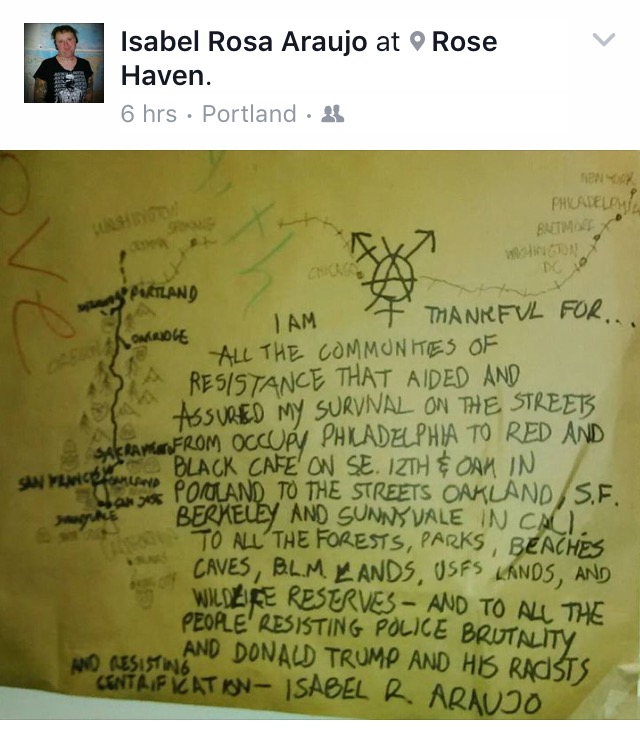 Isabel Rosa Araujo at Rose
Haven.
6 hrs · Portland ·
NEW YORK
PHILADELPHIA
BALTIMORE
WASHINGTON
DC
CHICAGO
WASHINGTON
OLYMPIA SPOKANE
PORTLAND
OAKRIDGE
OREGON
SACRAMEN
SAN FRANCI OAKLAND
SAN JOSE
SUNNYVALE
I AM THANKFUL FOR...
ALL THE COMMUNITIES OF
RESISTANCE THAT AIDED AND
ASSURED MY SURVIVAL ON THE STREETS
FROM OCCUPY PHILADELPHIA TO RED AND
BLACK CAFE ON SE. 12TH & OAK IN
PORTLAND TO THE STREETS OAKLAND, S.F.
BERKELEY AND SUNNYVALE IN CALI.
TO ALL THE FORESTS, PARKS, BEACHES
CAVES, B.L.M LANDS, USFS LANDS, AND
WILDLIFE RESERVES - AND TO ALL THE
PEOPLE RESISTING POLICE BRUTALITY
AND DONALD TRUMP AND HIS RACISTS
AND RESISTING
GENTRIFICATION - ISABEL R. ARAUJO